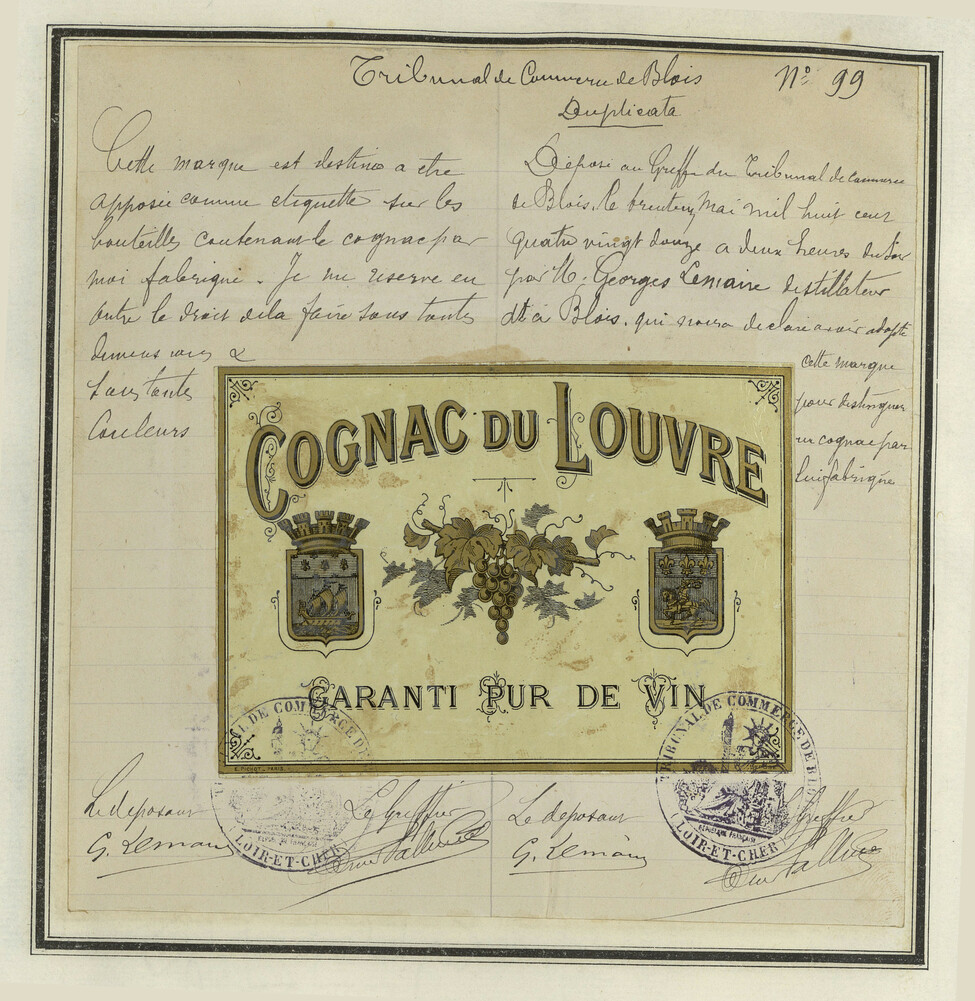 Tribunal de Commerce de Blois
Nº 99
Duplicata
Cette marque est destinée a etre
apposée comme etiquette sur les
bouteilles contenant le cognac par
moi fabriqué. Je me reserve en
outre le droit de la faire sous toutes
dimensions &
sous toutes
Couleurs
Déposé au Greffe du Tribunal de Commerce
de Blois, le trente Mai mil huit cent
quatre vingt douze a deux heures du soir
par M. Georges Lemaire distillateur
dt à Blois, qui nous a declaré avoir adopté
cette marque
pour distinguer
un cognac par
lui fabriqué
COGNAC DU LOUVRE
GARANTI PUR DE VIN
Le deposant
G. Lemaire
Le Greffier
Le deposant
G. Lemaire
Greffier
TRIBUNAL DE COMMERCE DE BLOIS
REPUBLIQUE FRANÇAISE
(LOIR-ET-CHER)
L DE COMMERCE DE
(LOIR-ET-CHER